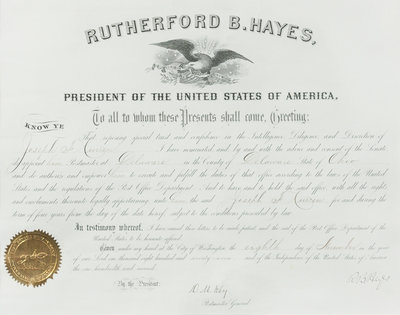 RUTHERFORD B. HAYES,
PRESIDENT OF THE UNITED STATES OF AMERICA,
To all to whom these Presents shall come, Greeting:
KNOW YE
That reposing special trust and confidence in the Intelligence, Diligence, and Discretion of
Joseph I have nominated and by and with the advice and consent of the Senate
do appoint him Postmaster at Delaware in the County of Delaware State of Ohio
and do authorize and empower him to execute and fulfil the duties of that office according to the laws of the United
States and the regulations of the Post Office Department: And to have and to hold the said office, with all the rights
and emoluments thereunto legally appertaining unto him the said Joseph for and during the
term of four years from the day of the date hereof, subject to the conditions prescribed by law.
In testimony whereof, I have caused these letters to be made patent and the seal of the Post Office Department of the
United States to be hereunto affixed.
Given under my hand at the City of Washington the day of in the year
of our Lord one thousand eight hundred and and of the Independence of the United States of America
the one hundred and second.
R.B. Hayes
By the President:
D. M. Key
Postmaster General